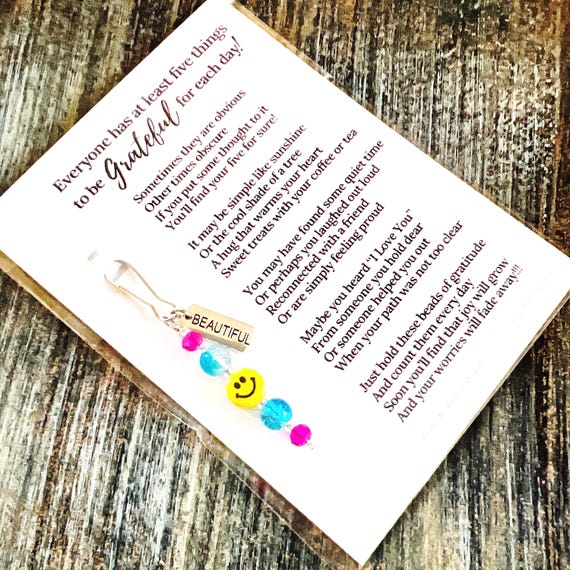 Everyone has at least five things
to be Grateful for each day!
Sometimes they are obvious
Other times obscure
If you put some thought to it
You'll find your five for sure!
It may be simple like sunshine
Or the cool shade of a tree
A hug that warms your heart
Sweet treats with your coffee or tea
You may have found some quiet time
Or perhaps you laughed out loud
Reconnected with a friend
Or are simply feeling proud
Maybe you heard "I Love You"
From someone you hold dear
Or someone helped you out
When your path was not too clear
Just hold these beads of gratitude
And count them every day
Soon you'll find that joy will grow
And your worries will fade away!!!
BEAUTIFUL